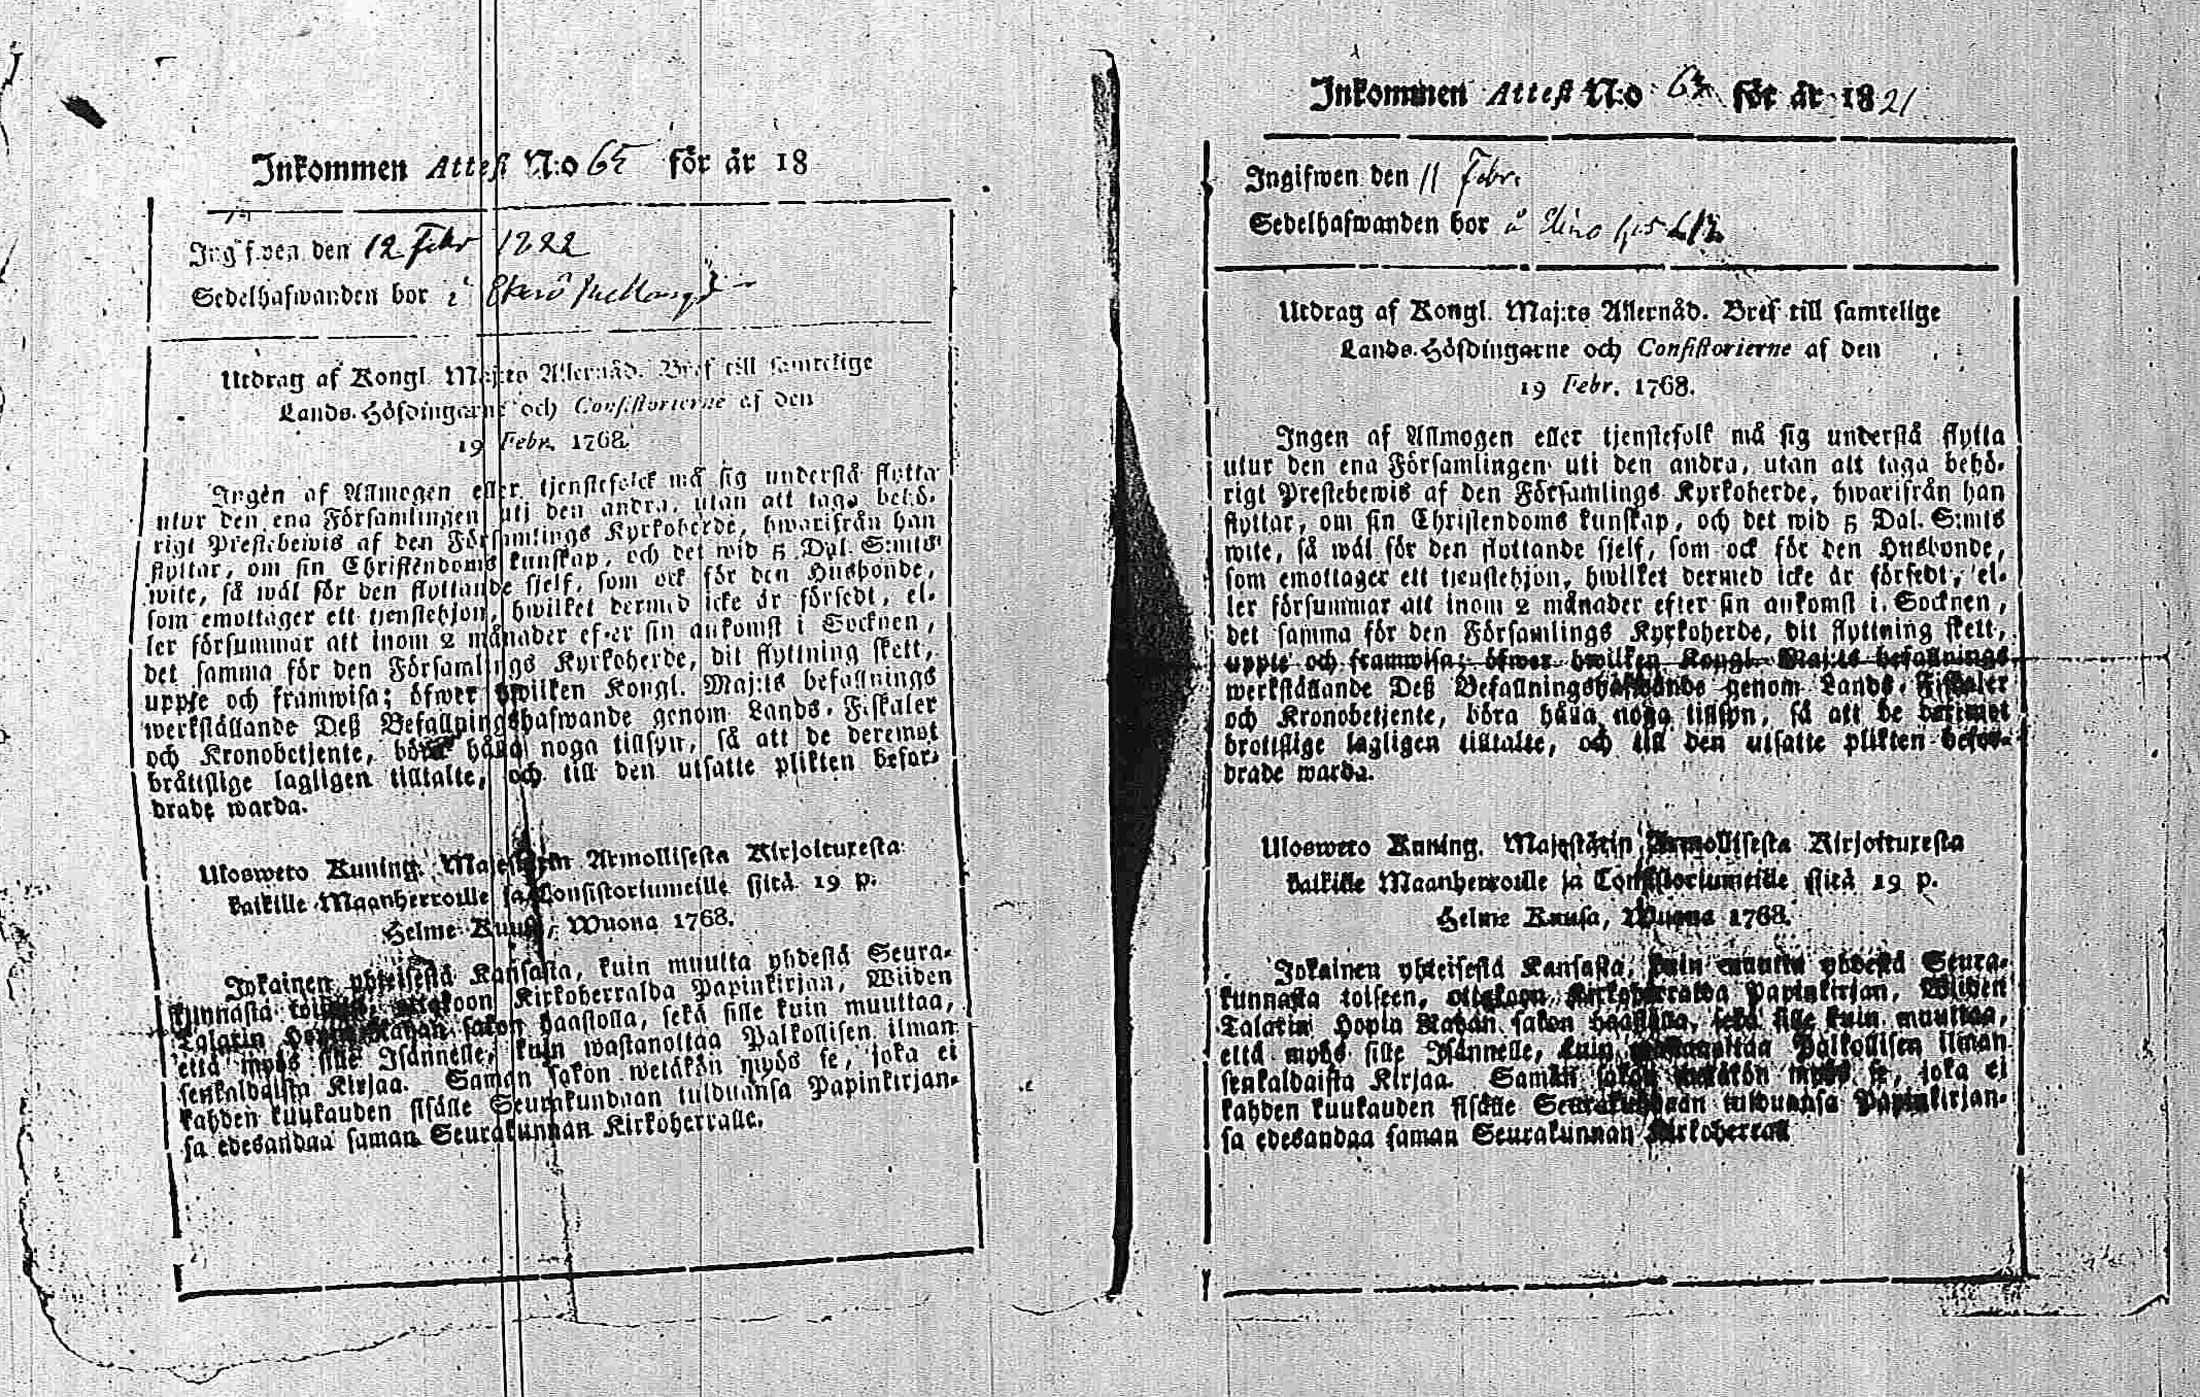 Inkommen Attest N:o 65 för år 18
Ingifwen den 12 Febr 1822
Sedelhafwanden bor i
Utdrag af Kongl. Maj:ts Allernåd. Bref till samtelige
Lands-Höfdingarne och Consistorierne af den
19 Febr. 1768.
Ingen af Allmogen eller tjenstefolck må sig understå flytta
utur den ena Församlingen uti den andra, utan att taga behö-
rigt Prestebewis af den Församlings Kyrkoherde, hwarifrån han
flyttar, om sin Christendoms kunskap, och det wid 5 Dal. S:mts
wite, så wäl för den flyttande sjelf, som ock för den Husbonde,
som emottager ett tjenstehjon, hwilket dermed icke är försedt, el-
ler försummar att inom 2 månader efter sin ankomst i Socknen,
det samma för den Församlings Kyrkoherde, dit flyttning skett,
uppte och framwisa; öfwer hwilken Kongl. Maj:ts befallnings
werkställande Deß Befallningshafwande genom Lands-Fiskaler
och Kronobetjente, böra hålla noga tillsyn, så att de deremot
bråttslige lagligen tilltalte, och till den utsatte plikten befor-
drade warda.
Ulosweto Kuning. Majestätin Armollisesta Kirjoituxesta
kaikille Maanherroille ja Consistoriumeille siitä 19 p.
Helme Kuusa, Wuona 1768.
Jokainen yhteisestä Kansasta, kuin muutta yhdestä Seura-
kunnasta toiseen, ottakoon Kirkoherralda Papinkirjan, Wiiden
Talarin Hopia Rahan sakon haastolla, sekä sille kuin muuttaa,
että myös sille Isännelle, kuin wastanottaa Palkollisen ilman
senkaldaista Kirjaa. Saman sakon wetäkön myös se, joka ei
kahden kuukauden sisälle Seurakundaan tulduansa Papinkirjan-
sa edesandaa saman Seurakunnan Kirkoherralle.
Inkommen Attest N:o för år 1821
Ingifwen den 11 Febr.
Sedelhafwanden bor å
Utdrag af Kongl. Maj:ts Allernåd. Bref till samtelige
Lands-Höfdingarne och Consistorierne af den
19 Febr. 1768.
Ingen af Allmogen eller tjenstefolk må sig understå flytta
utur den ena Församlingen uti den andra, utan att taga behö-
rigt Prestebewis af den Församlings Kyrkoherde, hwarifrån han
flyttar, om sin Christendoms kunskap, och det wid 5 Dal. S:mts
wite, så wäl för den flyttande sjelf, som ock för den Husbonde,
som emottager ett tjenstehjon, hwilket dermed icke är försedt, el-
ler försummar att inom 2 månader efter sin ankomst i Socknen,
det samma för den Församlings Kyrkoherde, dit flyttning skett,
uppte och framwisa; öfwer hwilken Kongl. Maj:ts befallnings
werkställande Deß Befallningshafwande genom Lands-Fiskaler
och Kronobetjente, böra hålla noga tillsyn, så att de deremot
brottslige lagligen tilltalte, och till den utsatte plikten befor-
drade warda.
Ulosweto Kuning. Majestätin Armollisesta Kirjoituxesta
kaikille Maanherroille ja Consistoriumeille siitä 19 p.
Helme Kuusa, Wuona 1768.
Jokainen yhteisestä Kansasta, kuin muutta yhdestä Seura-
kunnasta toiseen, ottakoon Kirkoherralda Papinkirjan, Wiiden
Talarin Hopia Rahan sakon haastolla, sekä sille kuin muuttaa,
että myös sille Isännelle, kuin wastanottaa Palkollisen ilman
senkaldaista Kirjaa. Saman sakon wetäkön myös se, joka ei
kahden kuukauden sisälle Seurakundaan tulduansa Papinkirjan-
sa edesandaa saman Seurakunnan Kirkoherrall